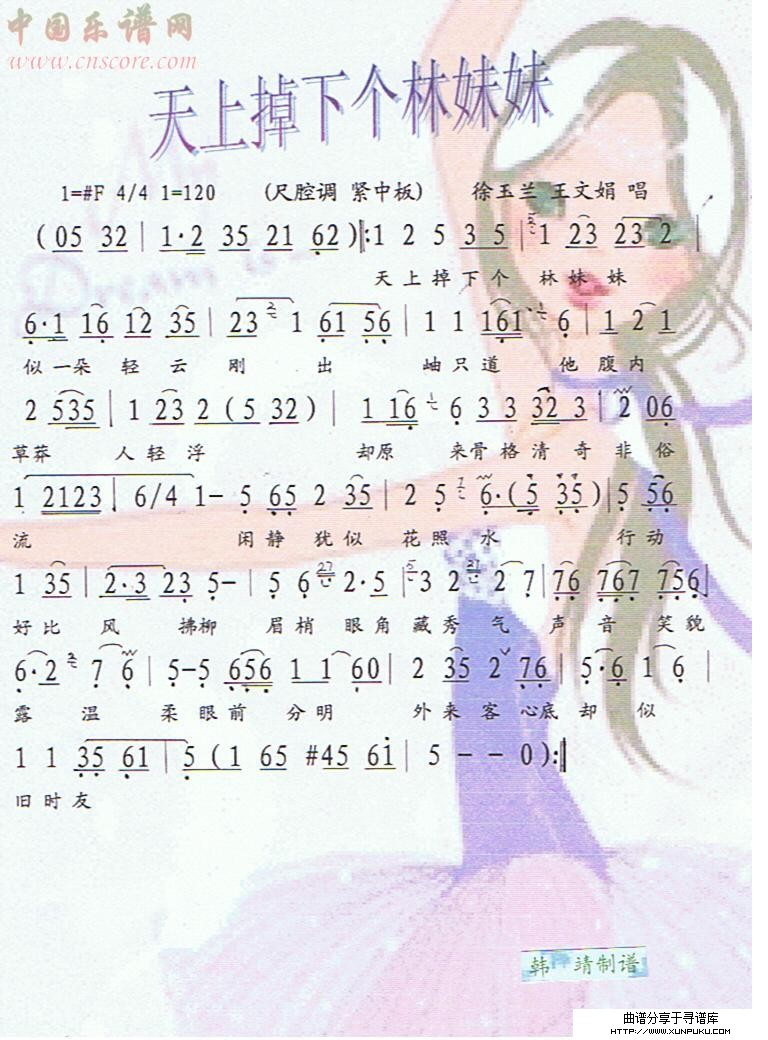 中国乐谱网
www.cnscore.com
天上掉下个林妹妹
1=#F 4/4 1=120 (尺腔调 紧中板) 徐玉兰 王文娟 唱
(05 32 | 1·2 35 21 62) |: 1 2 5 3 5 | 1 23 23 2 |
天上掉下个 林妹妹
6·1 16 12 35 | 23 1 61 56 | 1 1 161 6 | 1 2 1
似一朵 轻云 刚 出 岫只道 他腹内
2 535 | 1 23 2 (5 32) | 1 16 6 3 3 32 3 | 2 06
草莽 人轻浮 却原 来骨格清奇非俗
1 2123 | 6/4 1- 5 65 2 35 | 2 5 6·(5 35) | 5 56
流 闲静 犹似 花照 水 行动
1 35 | 2·3 23 5- | 5 6 2·5 | 3 2 2 7 | 76 767 756 |
好比 风 拂柳 眉梢 眼角藏秀 气 声音 笑貌
6·2 7 6 | 5-5 656 1 1 60 | 2 35 2 76 | 5·6 1 6 |
露 温 柔眼前 分明 外来客 心底却 似
1 1 35 61 | 5 (1 65 #45 61 | 5 - - 0) :|
旧时友
韩 靖制谱
曲谱分享于寻谱库
HTTP://WWW.XUNPUKU.COM